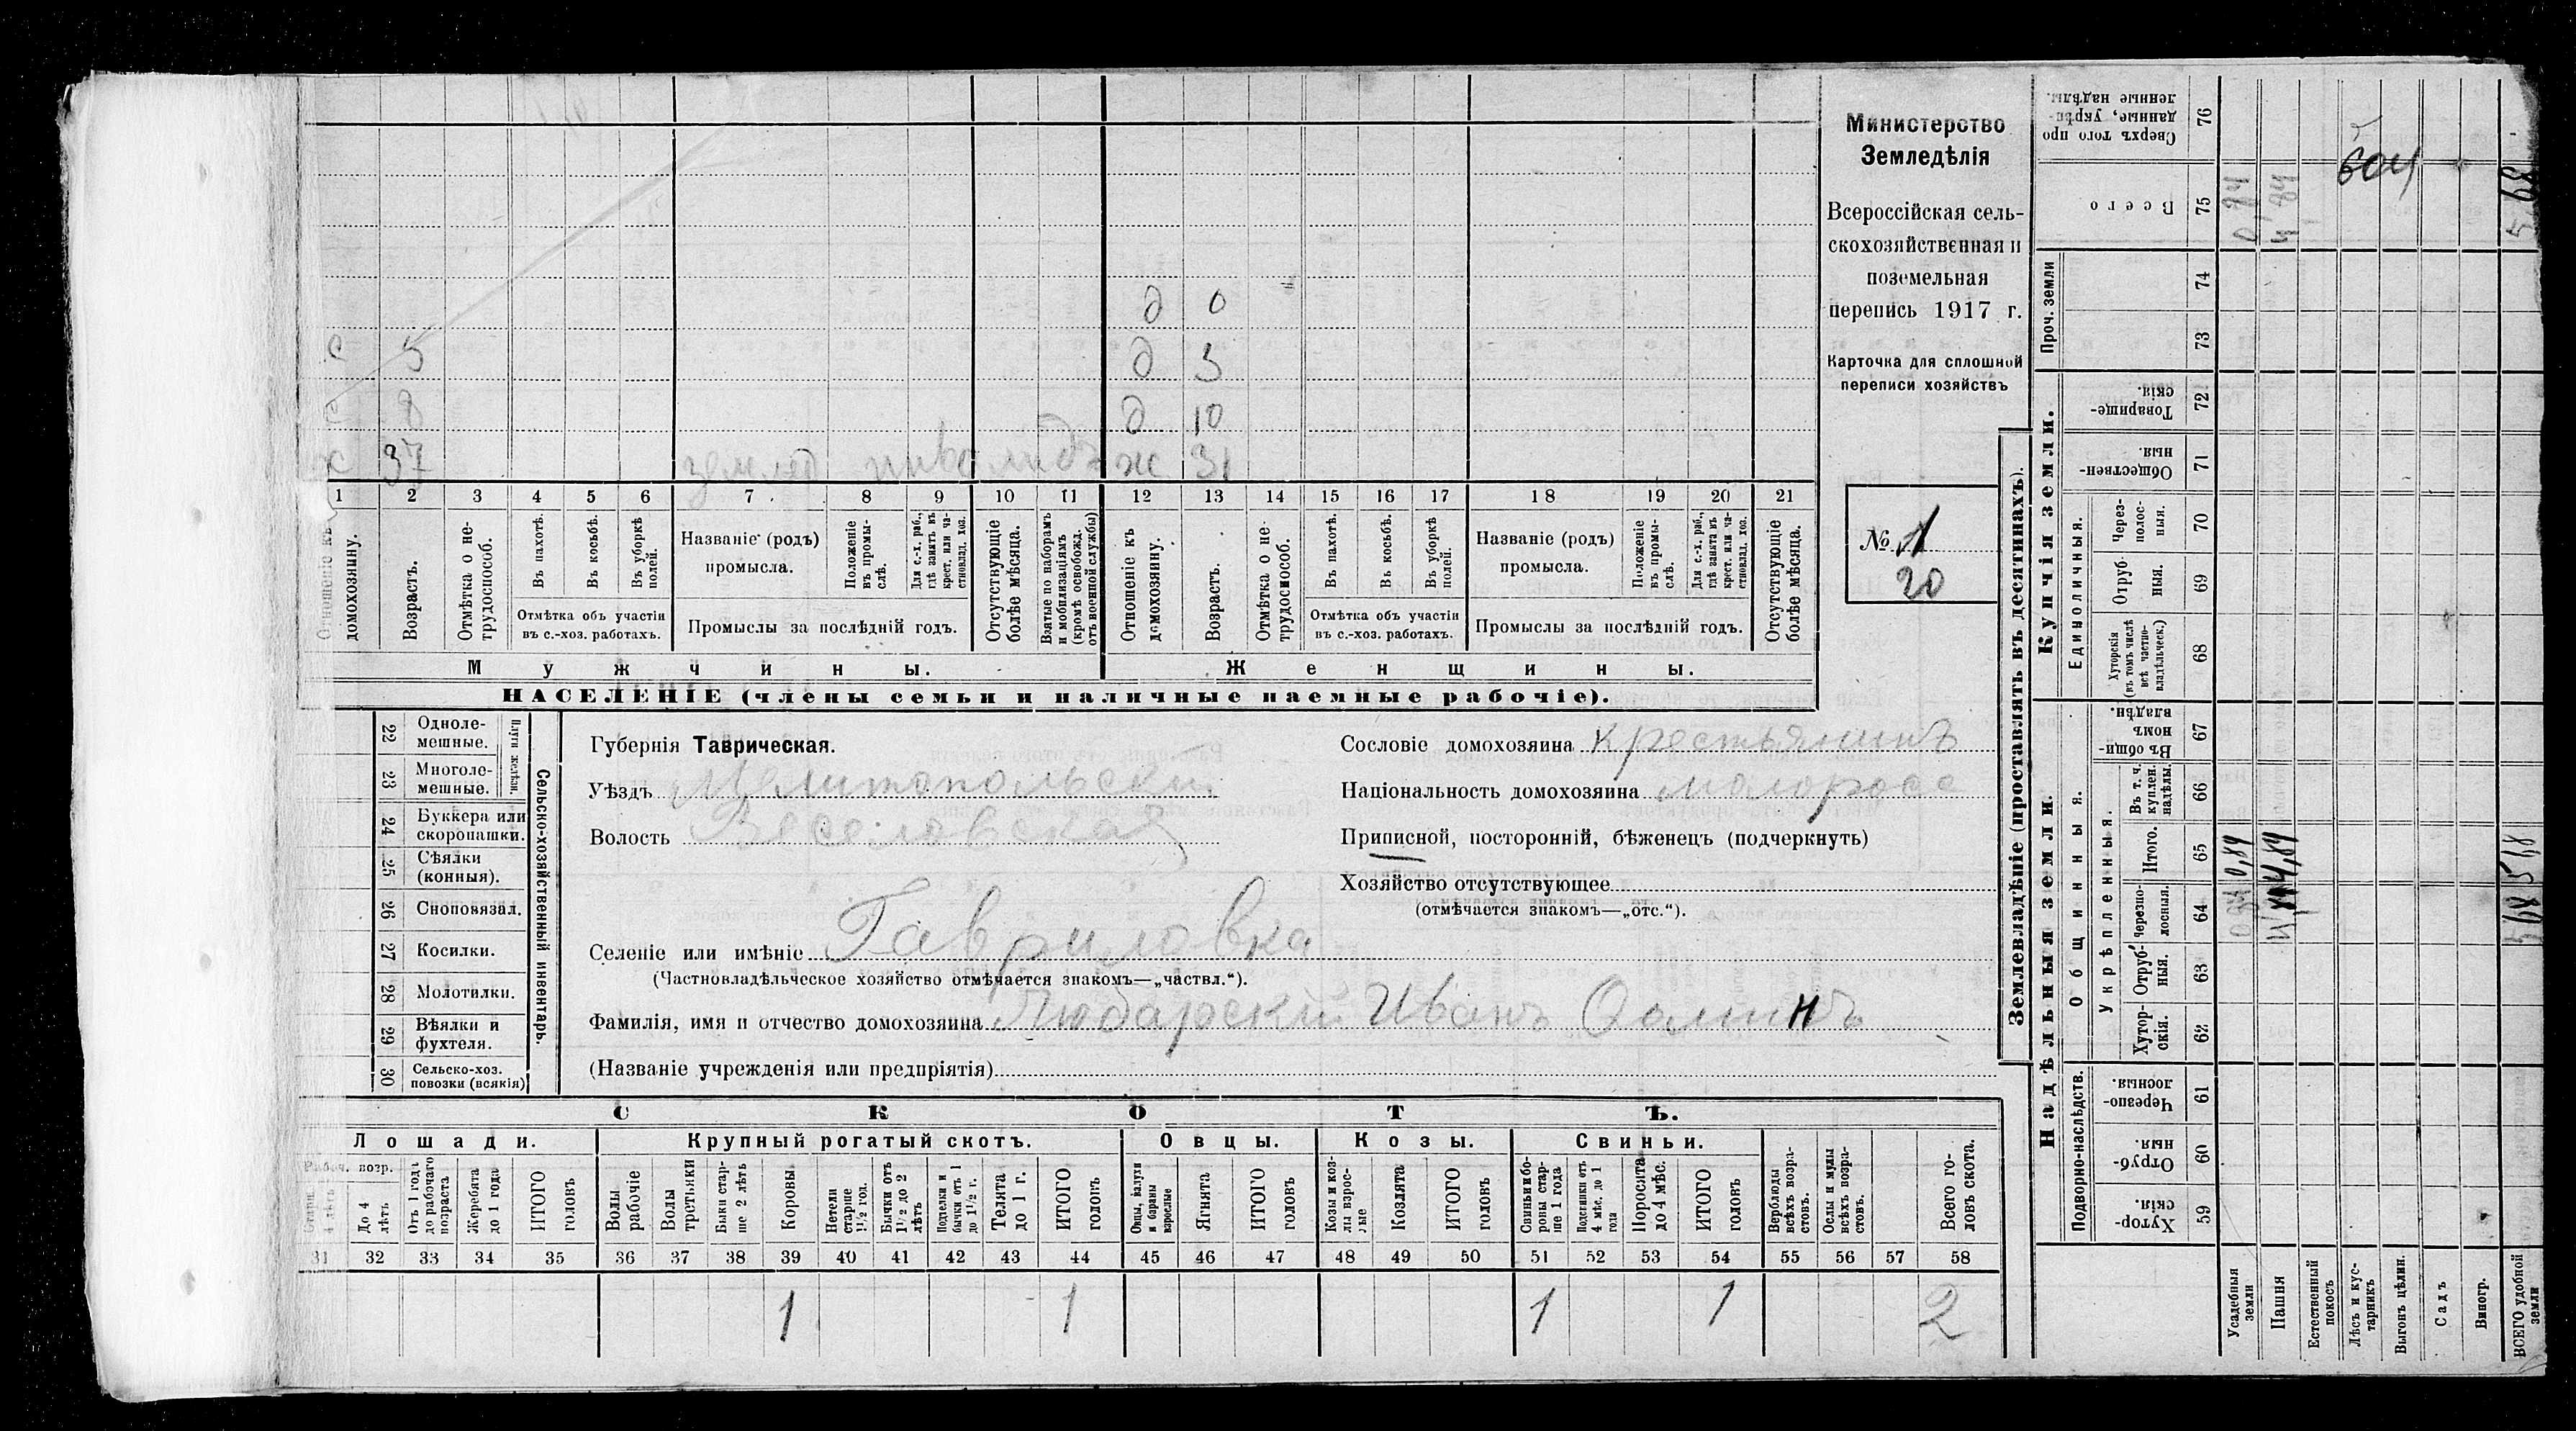 Министерство
Земледѣлія
Всероссійская сель-
скохозяйственная и
поземельная
перепись 1917 г.
Карточка для сплошной
переписи хозяйствъ
№ 1
20
д 0
с 5 д 3
с 8 д 10
х 37 землед инвалидъ ж 31
1 2 3 4 5 6 7 8 9 10 11 12 13 14 15 16 17 18 19 20 21
Отношеніе къ домохозяину.
Возрастъ.
Отмѣтка о не-трудоспособ.
Въ пахотѣ.
Въ косьбѣ.
Въ уборкѣ полей.
Отмѣтка объ участіи
въ с.-хоз. работахъ.
Названіе (родъ)
промысла.
Положеніе въ промы-слѣ.
Для с.-х. раб., гдѣ занятъ въ крест. или ча-стновлад. хоз.
Промыслы за послѣдній годъ.
Отсутствующіе болѣе мѣсяца.
Взятые по наборамъ и мобилизаціямъ (кромѣ освобожд. отъ военной службы)
Отношеніе къ домохозяину.
Возрастъ.
Отмѣтка о не-трудоспособ.
Въ пахотѣ.
Въ косьбѣ.
Въ уборкѣ полей.
Отмѣтка объ участіи
въ с.-хоз. работахъ.
Названіе (родъ)
промысла.
Положеніе въ промы-слѣ.
Для с.-х. раб., гдѣ занята въ крест. или ча-стновлад. хоз.
Промыслы за послѣдній годъ.
Отсутствующіе болѣе мѣсяца.
Мужчины. Женщины.
НАСЕЛЕНІЕ (члены семьи и наличные наемные рабочіе).
22 Одноле-мешные.
23 Многоле-мешные.
Плуги желѣзн.
24 Буккера или скоропашки.
25 Сѣялки (конныя).
26 Сноповязал.
27 Косилки.
28 Молотилки.
29 Вѣялки и фухтеля.
30 Сельско-хоз. повозки (всякія)
Сельско-хозяйственный инвентарь.
Губернія Таврическая.
Уѣздъ Мелитопольский
Волость Веселовская
Сословіе домохозяина крестьянинъ
Національность домохозяина малоросс
Приписной, посторонній, бѣженецъ (подчеркнуть)
Хозяйство отсутствующее
(отмѣчается знакомъ—„отс.“).
Селеніе или имѣніе Гавриловка
(Частновладѣльческое хозяйство отмѣчается знакомъ—„частвл.“).
Фамилія, имя и отчество домохозяина Любарский Иванъ
(Названіе учрежденія или предпріятія)
СКОТЪ.
Лошади. Крупный рогатый скотъ. Овцы. Козы. Свиньи.
Рабоч. возр.
Старш. 4 лѣтъ
До 4 лѣтъ
Отъ 1 года до рабочаго возраста
Жеребята до 1 года
ИТОГО головъ
Волы рабочіе
Волы третьяки
Быки стар-ше 2 лѣтъ
Коровы
Нетели старше 1½ год.
Бычки отъ 1½ до 2 лѣтъ
Подтелки и бычки отъ 1 до 1½ г.
Телята до 1 г.
ИТОГО головъ
Овцы, валухи и бараны взрослые
Ягнята
ИТОГО головъ
Козы и коз-лы взрос-лые
Козлята
ИТОГО головъ
Свиньи бо-ровы стар-ше 1 года
Подсвинки отъ 4 мѣс. до 1 года
Поросята до 4 мѣс.
ИТОГО головъ
Верблюды всѣхъ возра-стовъ.
Ослы и мулы всѣхъ возра-стовъ.
Всего го-ловъ скота.
31 32 33 34 35 36 37 38 39 40 41 42 43 44 45 46 47 48 49 50 51 52 53 54 55 56 57 58
1 1 1 1 2
Землевладѣніе (проставлять въ десятинахъ).
Надѣльныя земли.
Купчія земли.
Проч. земли
Подворно-наслѣдств.
Общинныя.
Укрѣпленныя.
Единоличныя.
Хутор-скія. 59
Отруб-ныя. 60
Черезпо-лосныя. 61
Хутор-скія. 62
Отруб-ныя. 63
Черезпо-лосныя. 64
Итого. 65
Въ т. ч. куплен. надѣлы. 66
Въ общи-номъ владѣн. 67
Хуторскія (въ томъ числѣ всѣ частно-владѣльческ.) 68
Отруб-ныя. 69
Через-полос-ныя. 70
Обществен-ныя. 71
Товарище-скія. 72
73
74
Всего 75
Сверхъ того про-данные, укрѣп-ленные надѣлы. 76
Усадебныя земли 0,84 0,84 0,84
Пашня 4,84 4,84
Естественный покосъ
Лѣсъ и кус-тарникъ
Выгонъ цѣлин.
Садъ
Виногр.
ВСЕГО удобной земли 5,68 5,68 5,68